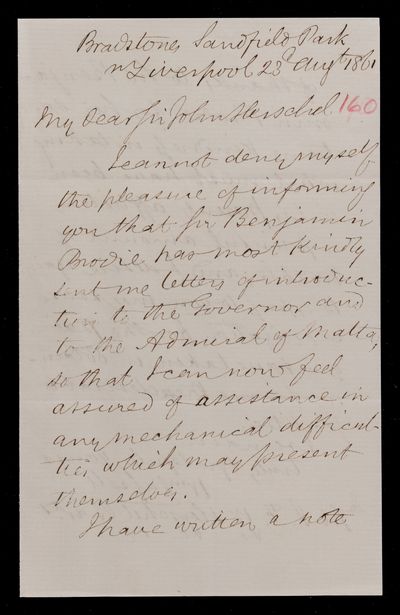 Bradstones Sandfield Park
nr Liverpool 23d Augt 1861
My dear Sir John Herschel 160
I cannot deny myself
the pleasure of informing
you that Sir Benjamin
Brodie has most kindly
sent me letters of introduc-
tion to the Governor and
to the Admiral of Malta,
so that I can now feel
assured of assistance in
any mechanical difficul-
ties which may present
themselves.
I have written a note